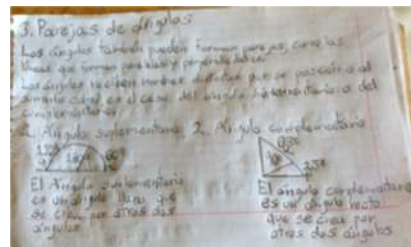 3. Parejas de ángulos
Los ángulos también pueden formar parejas, como las
líneas que forman paralelas y perpendiculares.
Los ángulos reciben nombres distintos por su posición o al
sumarlo como es el caso del ángulo suplementario o del
complementario.
1. Ángulo suplementario 2. Ángulo complementario
El Ángulo suplementario
es un ángulo llano que
se crea por otros dos
ángulos
El ángulo complementario
es un ángulo recto
que se crea por
otros dos ángulos